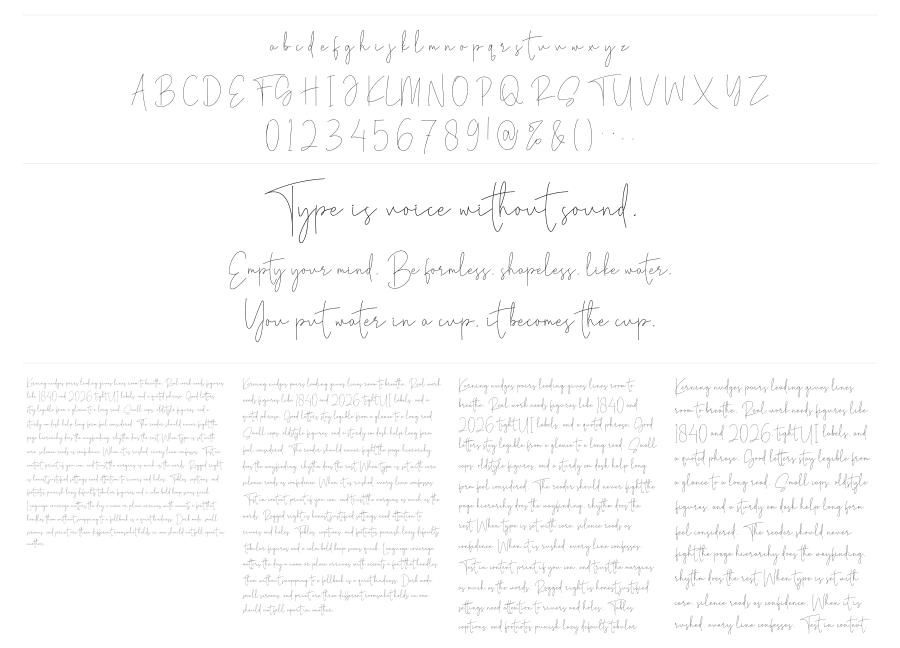 a b c d e f g h i j k l m n o p q r s t u v w x y z
A B C D E F G H I J K L M N O P Q R S T U V W X Y Z
0 1 2 3 4 5 6 7 8 9 ! @ % & ( ) . , . .
Type is voice without sound.
Empty your mind. Be formless. shapeless. like water.
You put water in a cup. it becomes the cup.
Kerning nudges pairs leading gives lines room to breathe. Real work needs figures
like 1840 and 2026 tight UI labels, and a quoted phrase. Good letters
stay legible from a glance to a long read. Small caps, oldstyle figures, and a
sturdy en dash help long form feel considered. The reader should never fight the
page hierarchy does the wayfinding, rhythm does the rest. When type is set with
care, silence reads as confidence. When it is rushed, every line confesses. Test in
context, print if you can, and trust the margins as much as the words. Ragged right
is honest justified settings need attention to rivers and holes. Tables, captions, and
footnotes punish lazy defaults tabular figures and a calm bold keep pages quiet.
Language coverage matters the day a name or place arrives with accents a font that
handles them without swapping to a fallback is a quiet kindness. Dark mode, small
screens, and print are three different rooms what holds in one should not fall apart in
another.
Kerning nudges pairs leading gives lines room to breathe. Real work needs
needs figures like 1840 and 2026 tight UI labels, and a
quoted phrase. Good letters stay legible from a glance to a long read.
Small caps, oldstyle figures, and a sturdy en dash help long form
feel considered. The reader should never fight the page hierarchy
does the wayfinding, rhythm does the rest. When type is set with care,
silence reads as confidence. When it is rushed, every line confesses.
Test in context, print if you can, and trust the margins as much as the
words. Ragged right is honest justified settings need attention to
rivers and holes. Tables, captions, and footnotes punish lazy defaults
tabular figures and a calm bold keep pages quiet. Language coverage
matters the day a name or place arrives with accents a font that handles
them without swapping to a fallback is a quiet kindness. Dark mode,
small screens, and print are three different rooms what holds in one
should not fall apart in another.
Kerning nudges pairs leading gives lines room to
breathe. Real work needs figures like 1840 and
2026 tight UI labels, and a quoted phrase. Good
letters stay legible from a glance to a long read. Small
caps, oldstyle figures, and a sturdy en dash help long
form feel considered. The reader should never fight the
page hierarchy does the wayfinding, rhythm does the
rest. When type is set with care, silence reads as
confidence. When it is rushed, every line confesses.
Test in context, print if you can, and trust the margins
as much as the words. Ragged right is honest justified
settings need attention to rivers and holes. Tables,
captions, and footnotes punish lazy defaults tabular
Kerning nudges pairs leading gives lines
room to breathe. Real work needs figures like
1840 and 2026 tight UI labels, and
a quoted phrase. Good letters stay legible from
a glance to a long read. Small caps, oldstyle
figures, and a sturdy en dash help long form
feel considered. The reader should never
fight the page hierarchy does the wayfinding,
rhythm does the rest. When type is set with
care, silence reads as confidence. When it is
rushed, every line confesses. Test in context